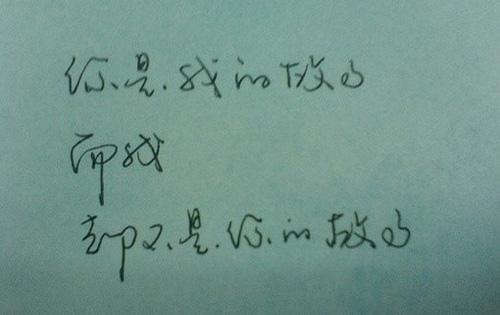 你是我的故的
而我
却不是你的故的